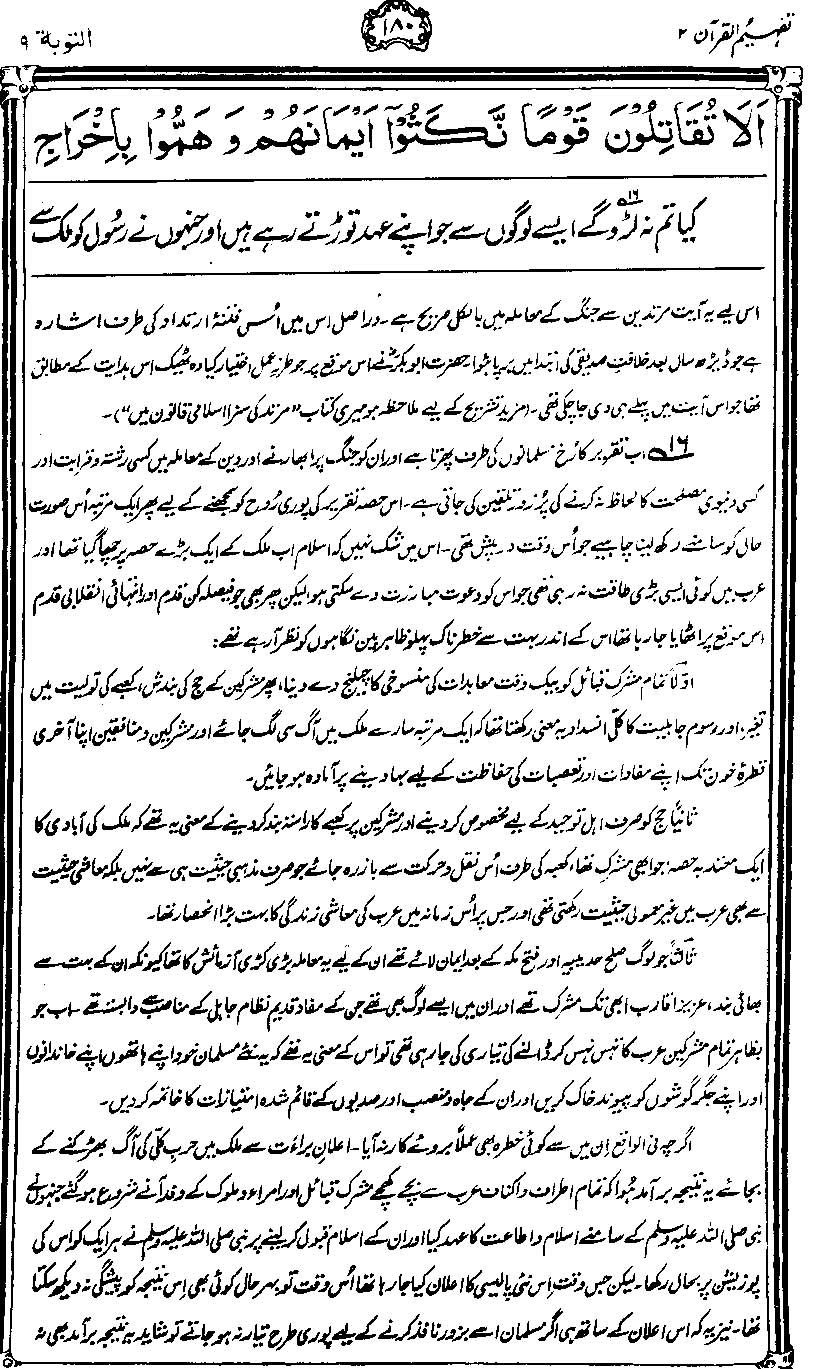 تفہیم القرآن ۲
۱۸۰
التوبۃ ۹
اَلَا تُقَاتِلُوْنَ قَوْمًا نَّكَثُوْٓا اَيْمَانَهُمْ وَ هَمُّوْا بِاِخْرَاجِ
کیا تم نہ لڑو گے۱۶ ایسے لوگوں سے جو اپنے عہد توڑتے رہے ہیں اور جنہوں نے رسُول کو ملک سے
اس لیے یہ آیت مرتدین سے جنگ کے معاملہ میں بالکل صریح ہے۔ دراصل اس میں اُس فتنۂ ارتداد کی طرف اشارہ
ہے جو ڈیڑھ سال بعد خلافتِ صدیقی کی ابتدا میں برپا ہُوا۔ حضرت ابوبکرؓ نے اس موقع پر جو طرزِ عمل اختیار کیا وہ ٹھیک اس ہدایت کے مطابق
تھا جو اس آیت میں پہلے ہی دی جا چکی تھی۔ (مزید تشریح کے لیے ملاحظہ ہو میری کتاب ”مرتد کی سزا اسلامی قانون میں“)۔
۱۶ اب تقریر کا رُخ مسلمانوں کی طرف پھرتا ہے اور ان کو جنگ پر ابھارنے اور دین کے معاملہ میں کسی رشتہ و قرابت اور
کسی دنیوی مصلحت کا لحاظ نہ کرنے کی پُرزور تلقین کی جاتی ہے۔ اس حصہ تقریر کی پوری رُوح کو سمجھنے کے لیے پھر ایک مرتبہ اُس صورت
حال کو سامنے رکھ لینا چاہیے جو اُس وقت درپیش تھی۔ اس میں شک نہیں کہ اسلام اب ملک کے ایک بڑے حصہ پر چھا گیا تھا اور
عرب میں کوئی ایسی بڑی طاقت نہ رہی تھی جو اس کو دعوتِ مبارزت دے سکتی ہو، لیکن پھر بھی جو فیصلہ کن قدم اور انتہائی انقلابی قدم
اس موقع پر اٹھایا جا رہا تھا اس کے اندر بہت سے خطرناک پہلو ظاہر بین نگاہوں کو نظر آ رہے تھے:
اوّلاً تمام مشرک قبائل کو بیک وقت معاہدات کی منسوخی کا چیلنج دے دینا، پھر مشرکین کے حج کی بندش، کعبے کی تولیت میں
تغیر، اور رسومِ جاہلیت کا کلّی انسداد یہ معنی رکھتا تھا کہ ایک مرتبہ سارے ملک میں آگ سی لگ جائے اور مشرکین و منافقین اپنا آخری
قطرۂ خون تک اپنے مفادات اور تعصبات کی حفاظت کے لیے بہا دینے پر آمادہ ہو جائیں۔
ثانیاً حج کو صرف اہلِ توحید کے لیے مخصوص کر دینے اور مشرکین پر کعبے کا راستہ بند کر دینے کے معنی یہ تھے کہ ملک کی آبادی کا
ایک معتد بہ حصہ، جو ابھی مشرک تھا، کعبہ کی طرف اُس نقل و حرکت سے باز رہ جائے جو صرف مذہبی حیثیت ہی سے نہیں بلکہ معاشی حیثیت
سے بھی عرب میں غیر معمولی حیثیت رکھتی تھی اور جس پر اُس زمانہ میں عرب کی معاشی زندگی کا بہت بڑا انحصار تھا۔
ثالثاً جو لوگ صلح حدیبیہ اور فتح مکہ کے بعد ایمان لائے تھے ان کے لیے یہ معاملہ بڑی کڑی آزمائش کا تھا کیونکہ ان کے بہت سے
بھائی بند، عزیز اقارب ابھی تک مشرک تھے اور ان میں ایسے لوگ بھی تھے جن کے مفاد قدیم نظامِ جاہلی کے مناصب سے وابستہ تھے۔ اب جو
بظاہر تمام مشرکینِ عرب کا تہس نہس کر ڈالنے کی تیاری کی جا رہی تھی تو اس کے معنی یہ تھے کہ یہ نئے مسلمان خود اپنے ہاتھوں اپنے خاندانوں
اور اپنے جگر گوشوں کو پیوندِ خاک کریں اور ان کے جاہ و منصب اور صدیوں کے قائم شدہ امتیازات کا خاتمہ کر دیں۔
اگرچہ فی الواقع اِن میں سے کوئی خطرہ بھی عملاً بروئے کار نہ آیا۔ اعلانِ براءت سے ملک میں حربِ کلّی کی آگ بھڑکنے کے
بجائے یہ نتیجہ برآمد ہُوا کہ تمام اطراف و اکناف عرب سے بچے کھچے مشرک قبائل اور امراء و ملوک کے وفد آنے شروع ہو گئے جنہوں نے
نبی صلی اللہ علیہ وسلم کے سامنے اسلام و اطاعت کا عہد کیا اور ان کے اسلام قبول کر لینے پر نبی صلی اللہ علیہ وسلم نے ہر ایک کو اس کی
پوزیشن پر بحال رکھا۔ لیکن جس وقت اِس نئی پالیسی کا اعلان کیا جا رہا تھا اُس وقت تو بہرحال کوئی بھی اِس نتیجہ کو پیشگی نہ دیکھ سکتا
تھا۔ نیز یہ کہ اس اعلان کے ساتھ ہی اگر مسلمان اسے بزور نافذ کرنے کے لیے پوری طرح تیار نہ ہو جاتے تو شاید یہ نتیجہ برآمد بھی نہ